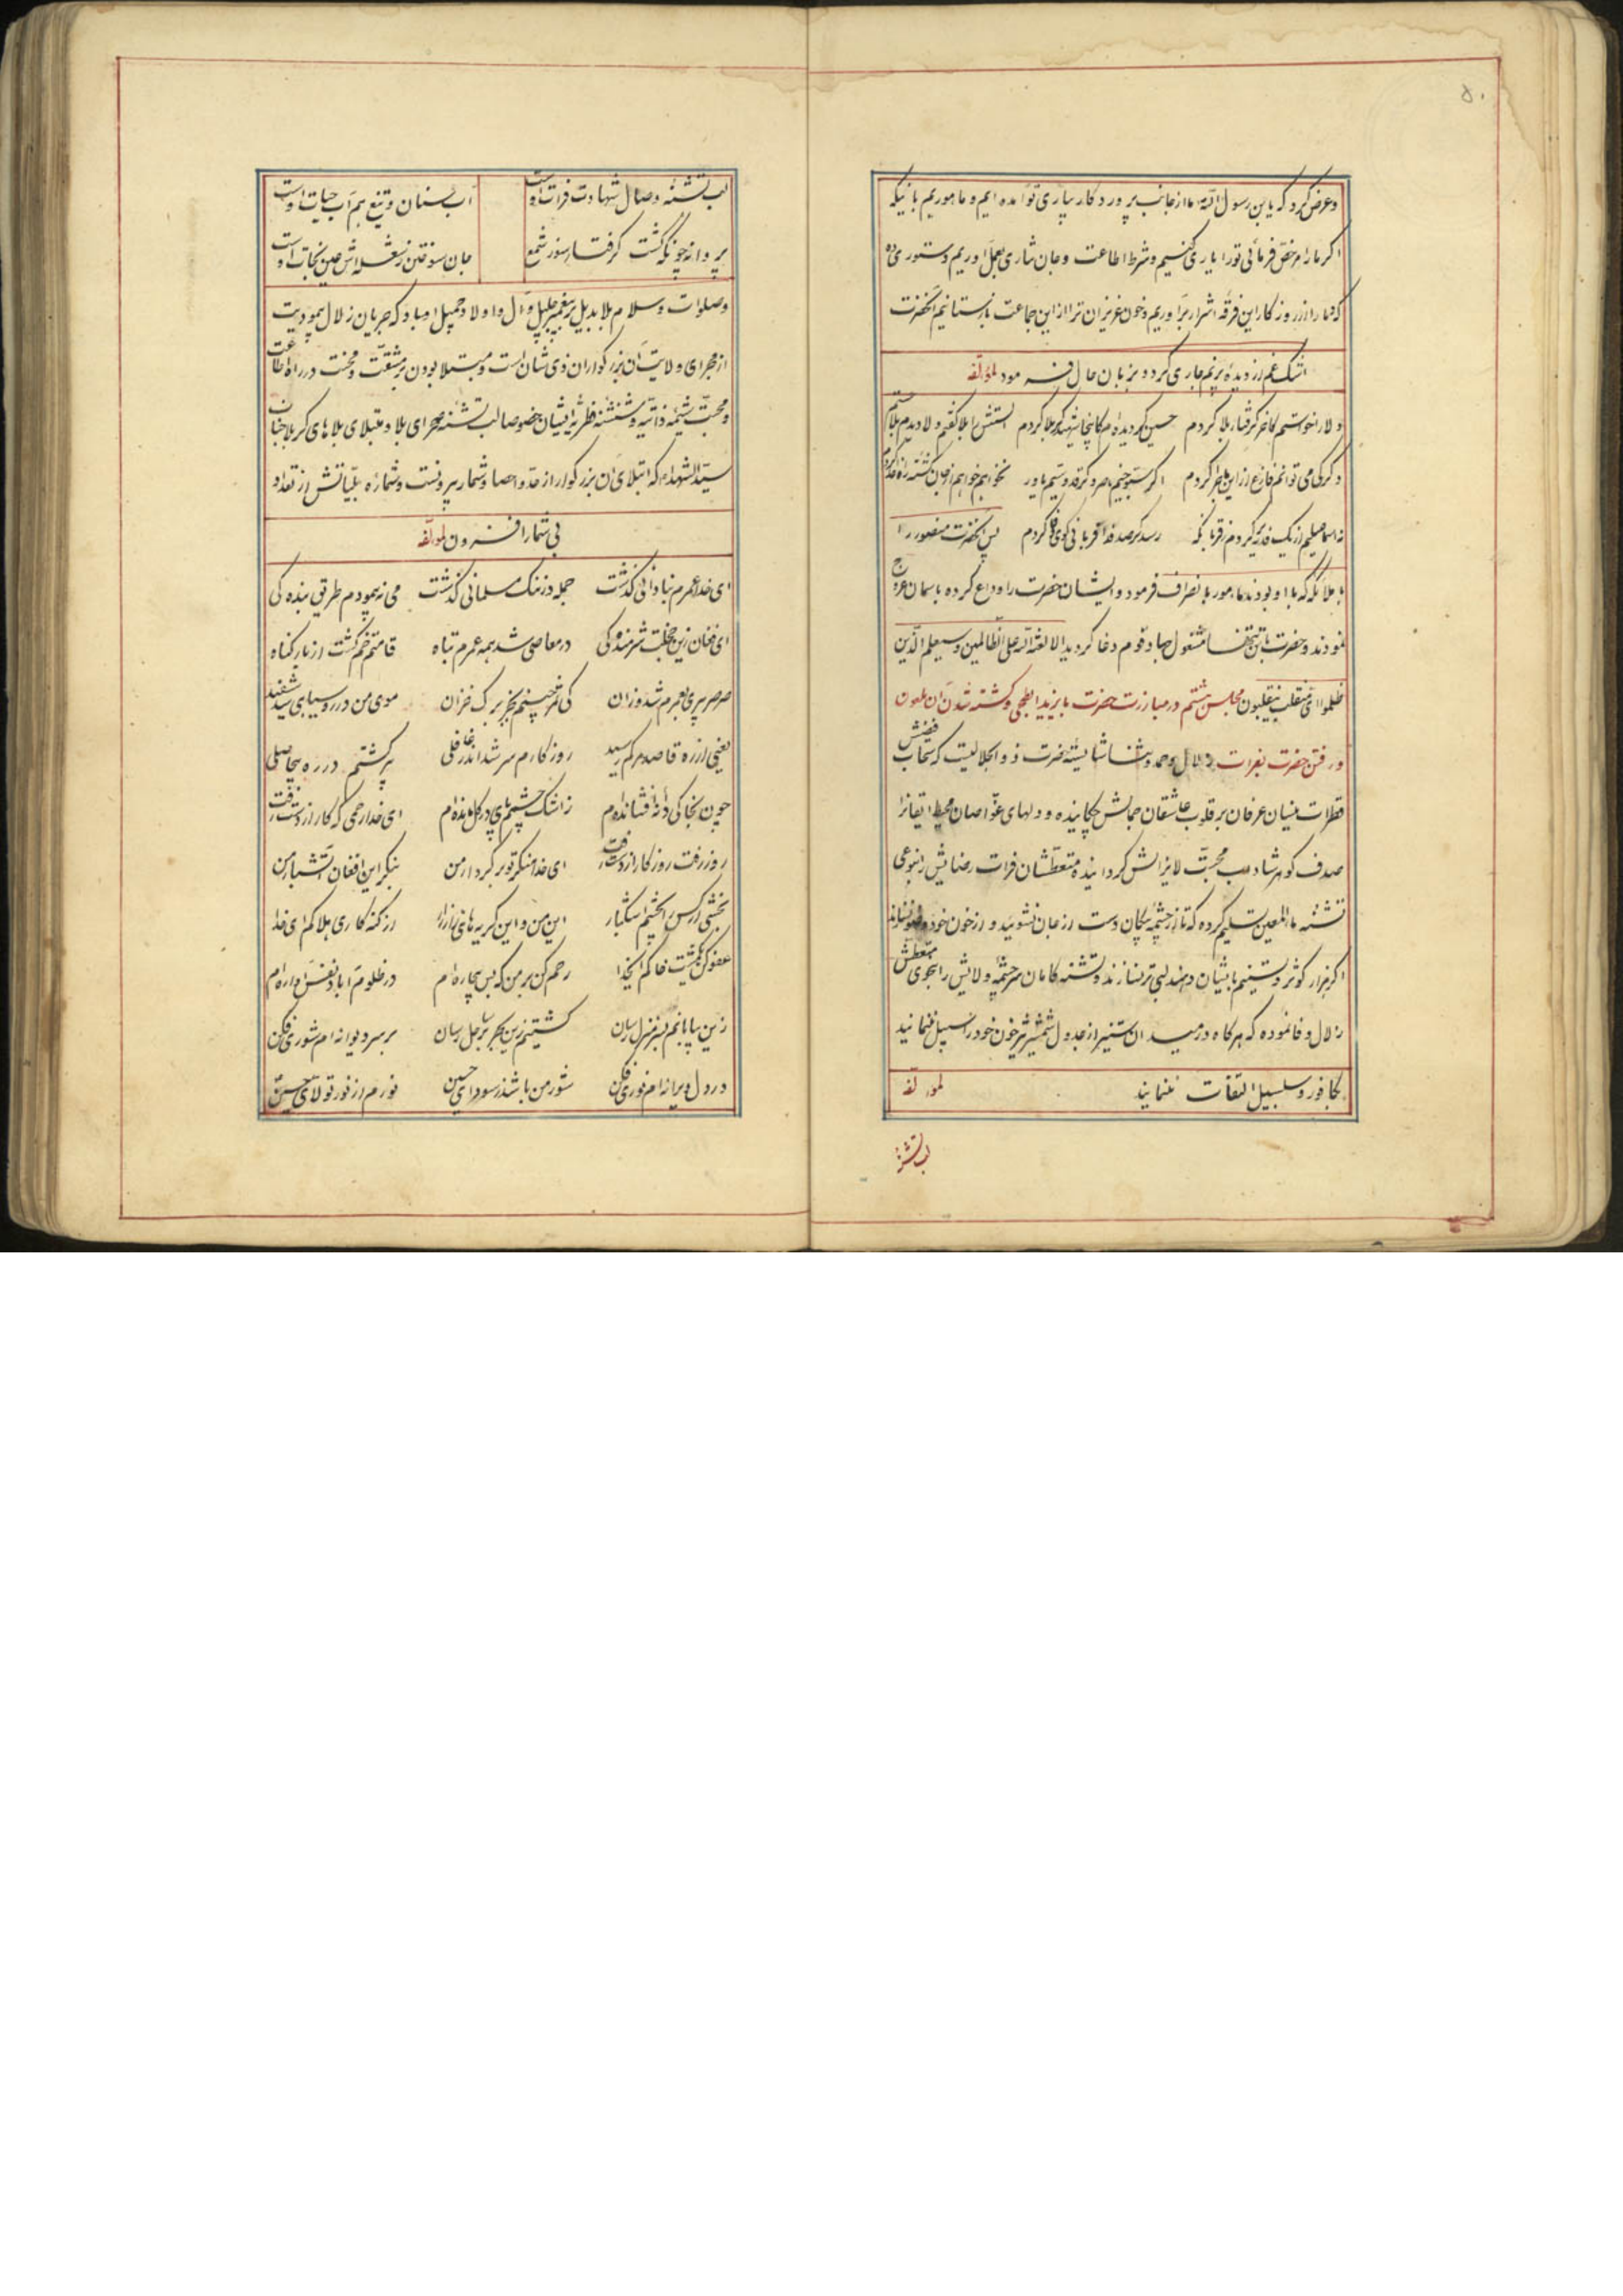 ۵۰
وعرض کرد که یابن رسول الله ما از جانب پروردکار بیاری تو آمده ایم و ماموریم باینکه
اکر ما را مرخص فرمائی تو را یاری کنیم و شرط اطاعت و جان نثاری بعمل اوریم دستوری ده
که دمار از روزکار این فرقه اشرار براوریم و خون عزیزان ترا از این جماعت بازستانیم آنحضرت
اشک غم از دیده پرنم جاری کرد و بزبان حال فرمود لمؤلفه
ولا را خواستم کاخر کرفتار بلا کردم حسین کردیده ام کانجا شهید کربلا کردم
دکر کی می توانم فارغ از این ماجرا کردم
نه اسماعیلم از یک فدیه کردم ز قربانکه رسد کر صد فدا قربانی کوی کردم پس آنحضرت منصور را
با ملائکه که با او بودند مامور بانصراف فرمود و ایشان حضرت را وداع کرده باسمان عروج
نمودند و حضرت بتن تنها مشغول جهاد قوم دغا کردید الا لعنة الله علی الظالمین وسیعلم الذین
ظلموا ای منقلب ینقلبون مجلس هشتم در مبارزت حضرت با یزید ابطحی و کشته شدن آن ملعون
و رفتن حضرت بفرات زلال حمد و ثنا شایسته حضرت ذو الجلالیست که سحاب فیضش
قطرات نیسان عرفان بر قلوب عاشقان جمالش چکانیده و دلهای غواصان محیط ایقانرا
صدف کوهر شاداب محبت لایزالش کردانیده متعطشان فرات رضایش را بنوعی
تشنه ماء المعین تسلیم کرده که تا از چشمه پیکان دست از جان نشویند و از خون خود وضو نسازند
اکر هزار کوثر و تسنیم بایشان دهند لبی تر نسازند و تشنه کامان سرچشمه ولایش را بجوی متعطش
زلال وفا نموده که هرکاه در میدان ستیز از جدول شمشیر تیز خون خود را سبیل ننمایند
بکافور و سلسبیل التفات ننمایند لمؤلفه
لب تشنه
لب تشنه وصال شهادت فرات اوست آب سنان و تیغ هم آب حیات اوست
پروانه چونکه کشت کرفتار سوز شمع جان سوختن ز شعله اش عین نجات اوست
وصلوات و سلام بلا بدیل بر پیغمبر جلیل و آل و اولاد جمیل او باد که جریان زلال عبودیت
از مجرای ولایت آن بزرکواران ذی شان است و مبتلا بودن بر مشقت و محنت در راه اطاعت
و محبت شیمه ذاتیه و شنشنه فطریه ایشان خصوصا لب تشنه صحرای بلا و مبتلای بلاهای کربلا جناب
سید الشهداء که ابتلای آن بزرکوار از حد و احصا و شمار بیرونست و شماره بلیاتش از تعداد
بی شمار افزون لمؤلفه
ای خدا عمرم بنادانی کذشت جمله در ننک مسلمانی کذشت می نه پیمودم طریق بنده کی
ای فغان زین خجلت شرمنده کی در معاصی شد همه عمرم تباه قامتم خم کشت از بار کناه
صرصر پیری بعمرم شد وزان کی ثمر چینم بجز برک خزان موی من در روسیاهی شد سفید
یعنی از ره قاصد مرکم رسید روزکارم سر شد اندر غافلی پیر کشتم در ره بیحاصلی
چون بخاکی دانه افشانده ام ز اشک چشمم پای در کل مانده ام ای خدا رحمی که کار از دست رفت
روز رفت روزکار از دست رفت ای خدا منکر تو بر کردار من بنکر این افغان آتشبار من
بخشی ار کس را بچشم اشکبار این من و این کریه های زار زار از کنه کاری هلاکم ای خدا
عفو کن یکمشت خاکم ای خدا رحم کن بر من که بس بیچاره ام در ظلوم آباد نفس آواره ام
زین بیابانم بسر منزل رسان کشتیم زین بحر بر ساحل رسان بر سر دیوانه ام شوری فکن
در دل ویرانه ام نوری فکن شور من باشد ز سودای حسین نورم از نور تولای حسین